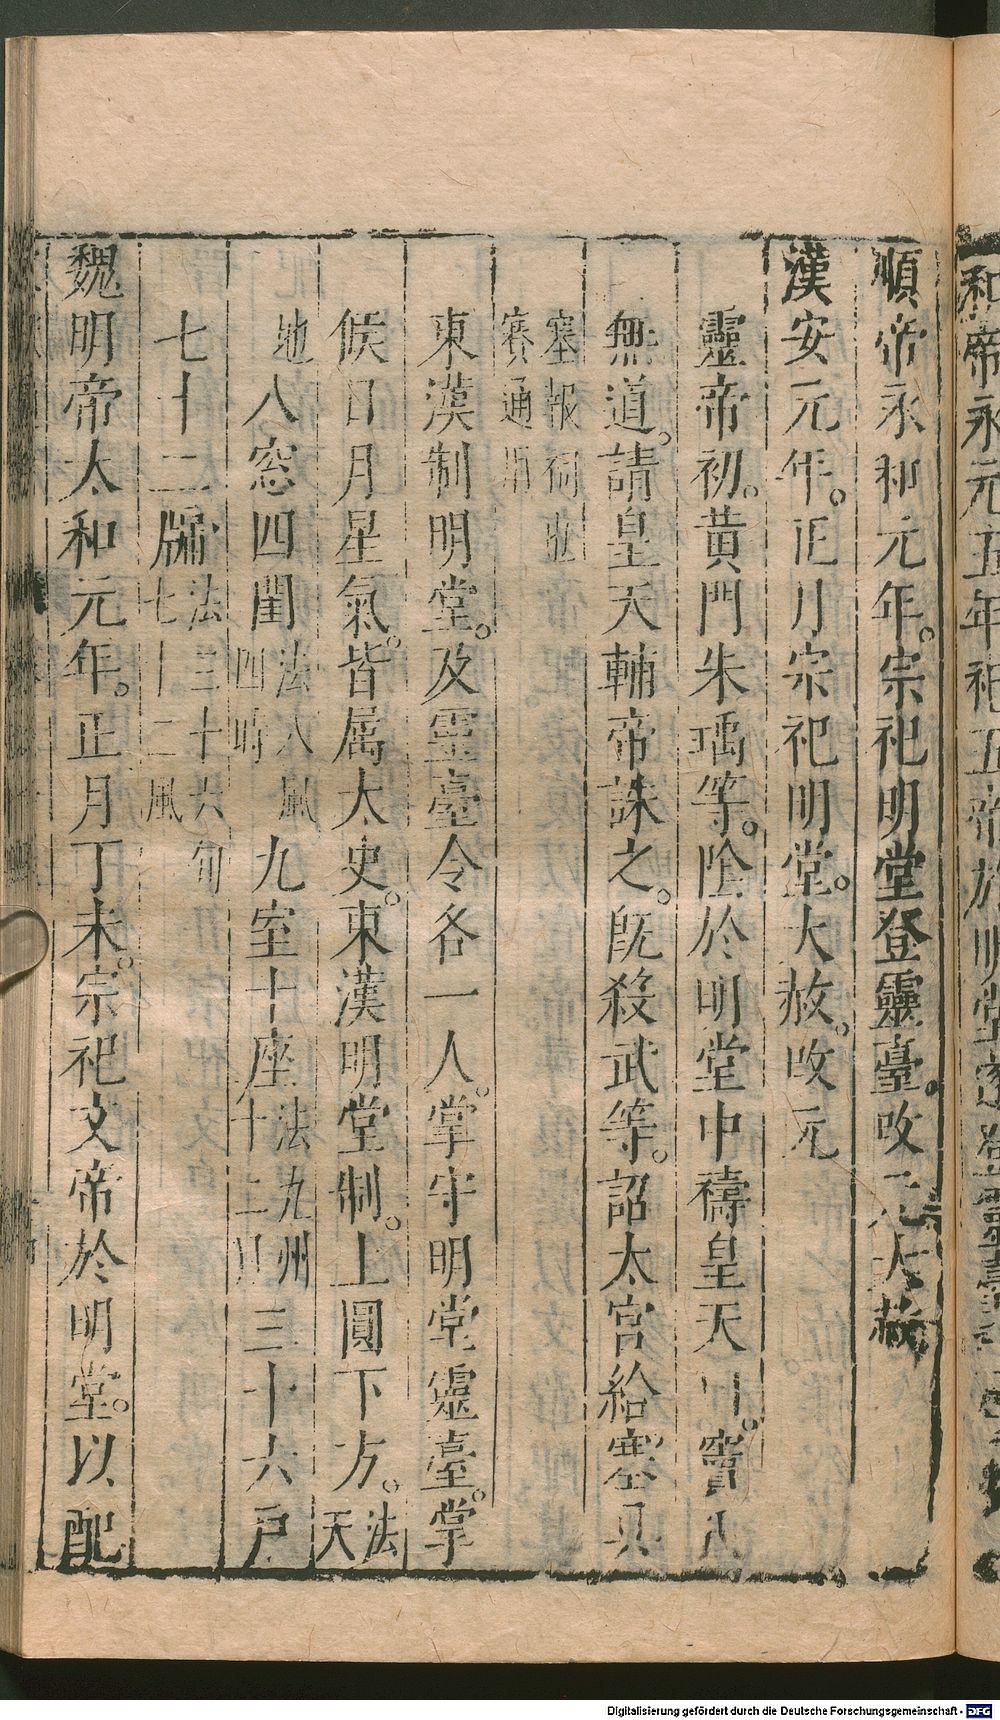 和帝永元五年祀五帝於明堂遂登靈臺
順帝永和元年。宗祀明堂登靈臺。改元大赦
漢安元年。正月宗祀明堂。大赦。改元
靈帝初。黃門朱瑀等。陰於明堂中禱皇天曰。竇武
無道。請皇天輔帝誅之。旣殺武等。詔太官給塞具
塞報祠也
賽通用
東漢制明堂。及靈臺令各一人。掌守明堂靈臺。掌
候日月星氣。皆属太史。東漢明堂制。上圓下方。法天
地八窓四闥法八風四時九室十座法九州十二月三十六戸
七十二牖法三十六旬七十二風
魏明帝太和元年。正月丁未。宗祀文帝於明堂。以配
Digitalisierung gefördert durch die Deutsche Forschungsgemeinschaft - DFG